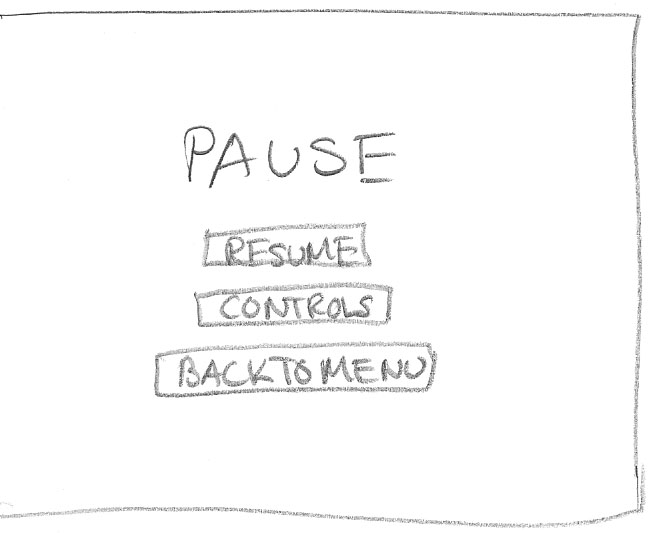 PAUSE
RESUME
CONTROLS
BACK TO MENU